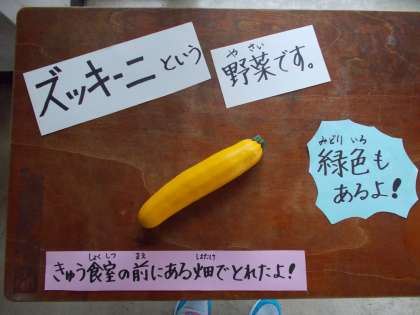 ズッキーニという
野菜です。
やさい
緑色も
みどりいろ
あるよ!
きゅう食室の前にある畑でとれたよ!
しょくしつ まえ はたけ